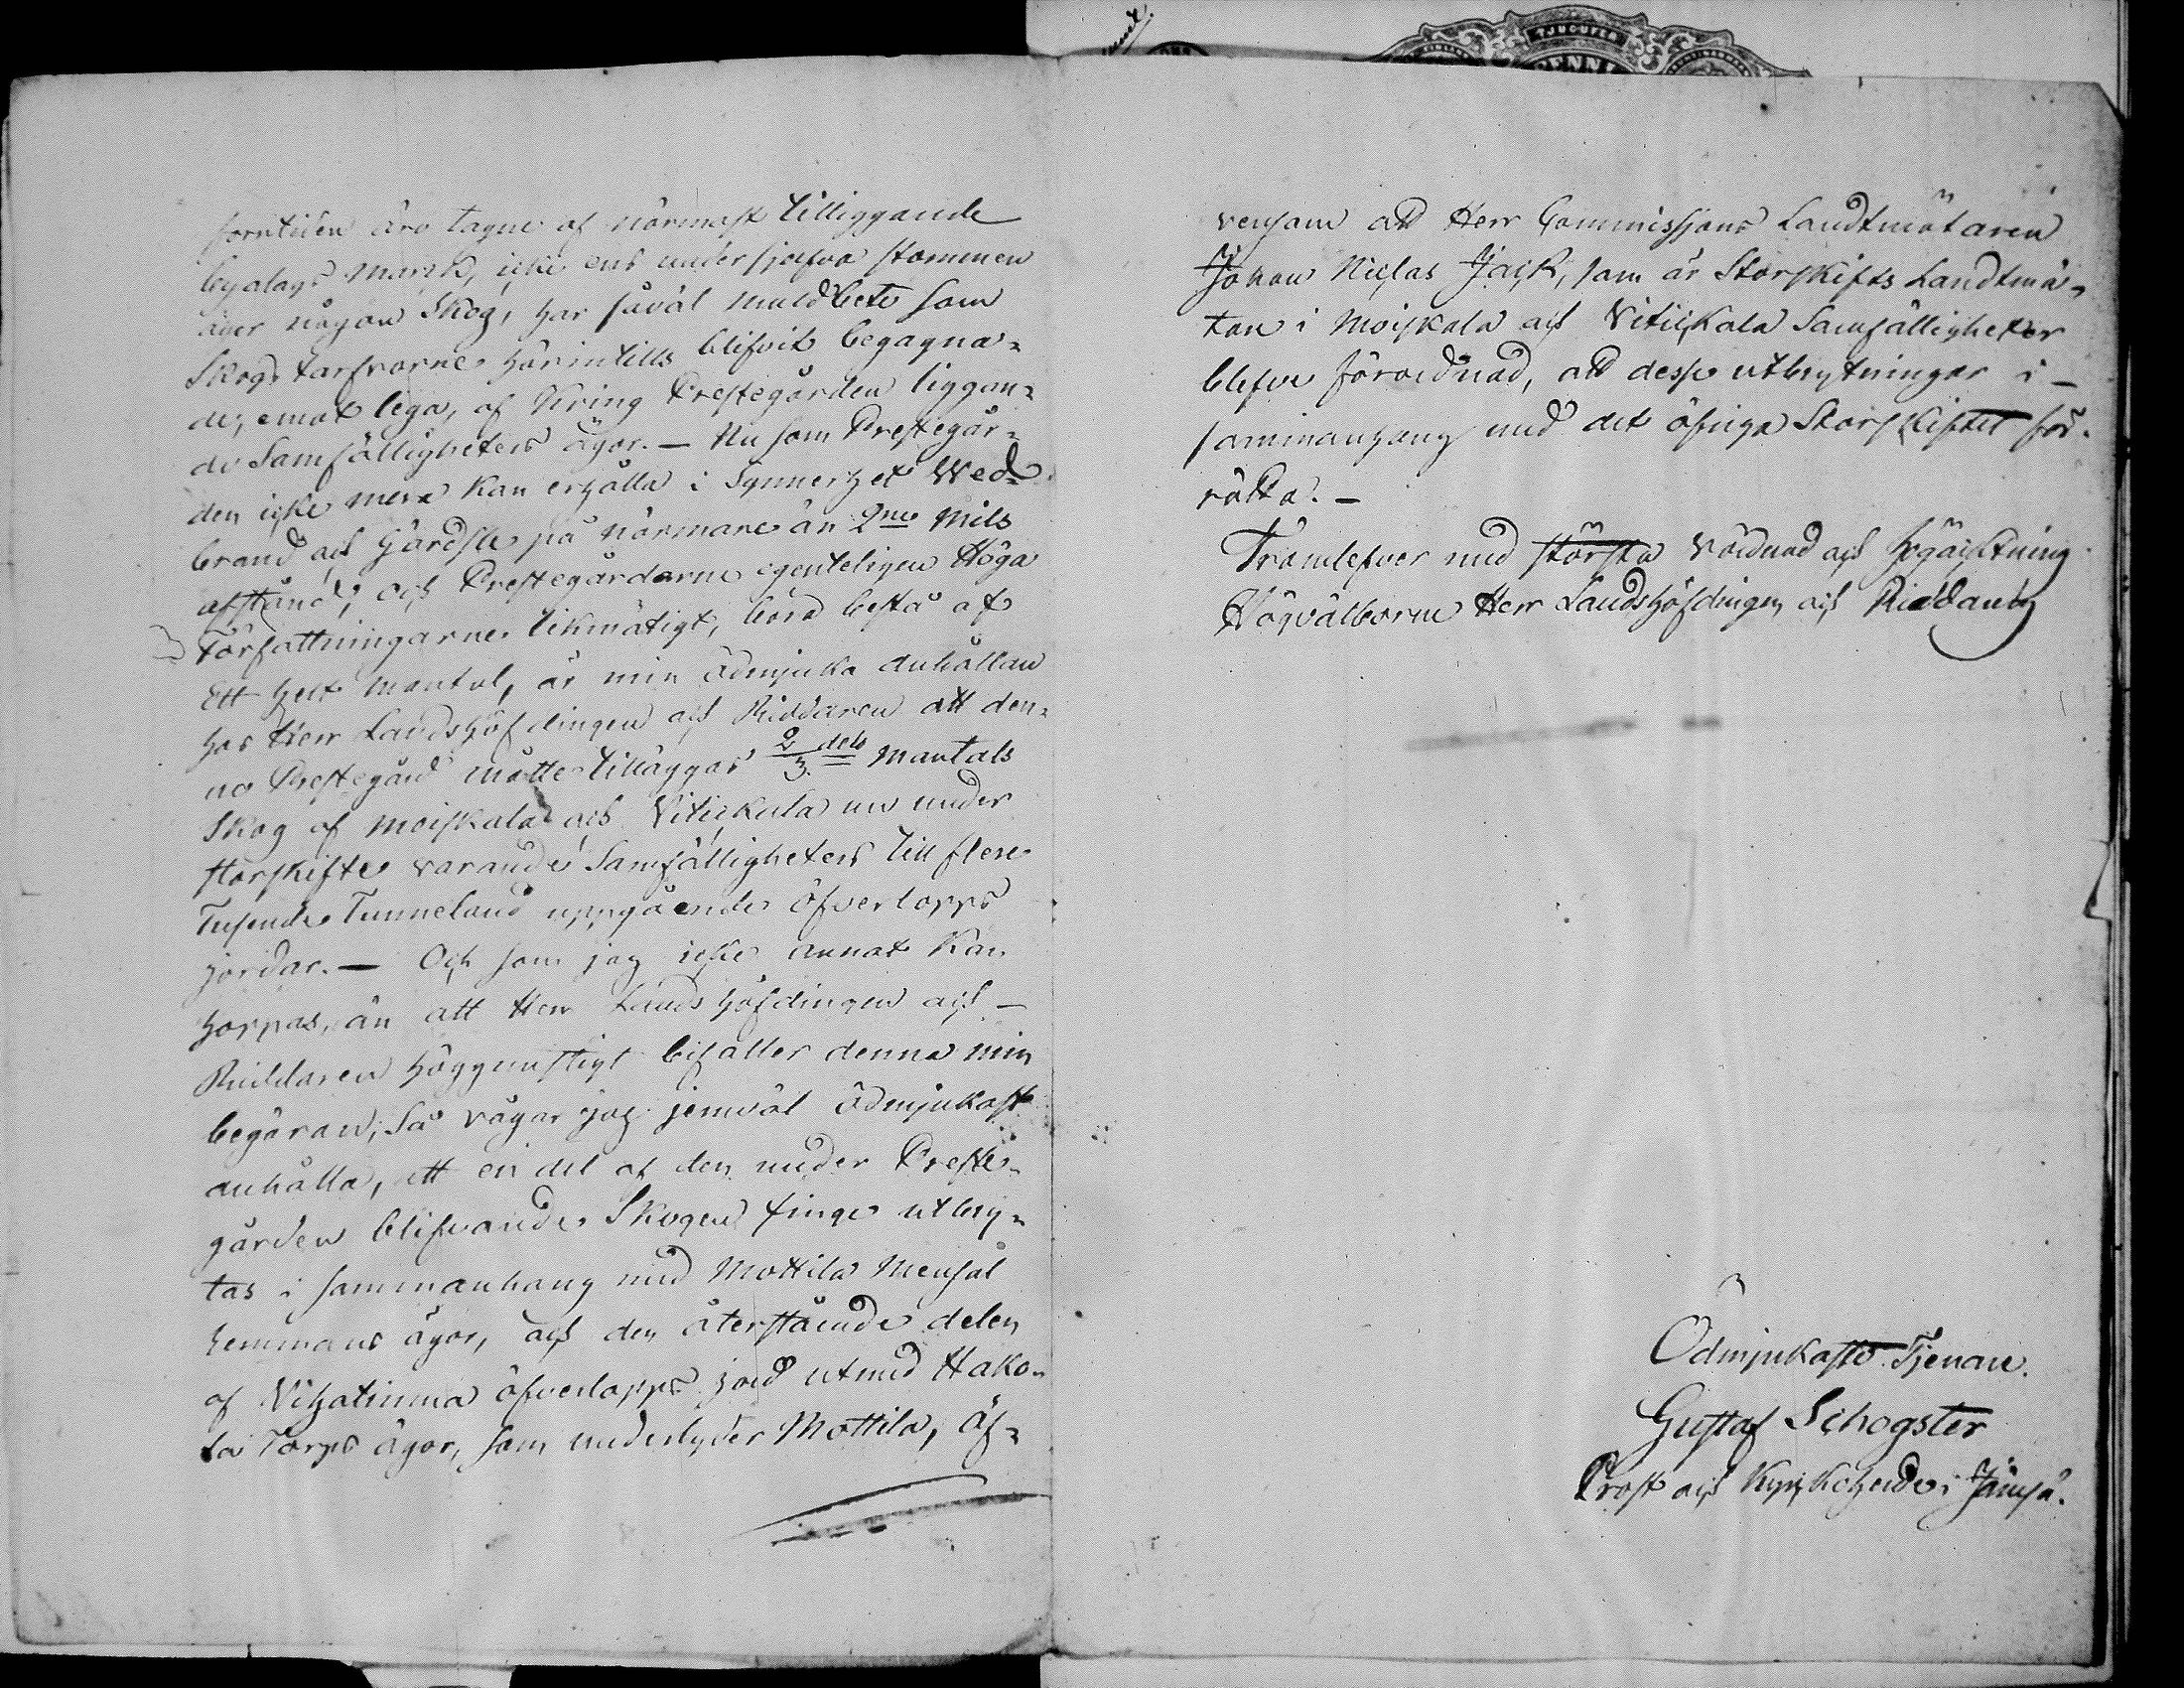 forntiden äro tagne af närmast tilliggande
byalags mark, icke ens under sjelfva stommen
äger någon Skog, har såväl muldbete som
Skogs tarfvorne härintills blifvit begagna-
de, emot lega, af kring Prestegården liggan-
de Samfälligheters ägor. — Nu som Prestegår-
den icke mera kan erhålla i Synnerhet Wed-
brand och Gärdsle på närmare än 2ne Mils
afstånd, och Prestegårdarne egenteligen Höga
Författningarne likmätigt, böra bestå af
Ett helt mantal, är min ödmjuka anhållan
hos Herr Landshöfdingen och Riddaren att den-
na Prestegård måtte tilläggas 2/3 dels mantals
Skog af Moiskala och Vitickala nu under
storskifte varande Samfälligheters till flere
Tusende Tunneland uppgående öfverlopps
jordar. — Och som jag icke annat kan
hoppas, än att Herr Landshöfdingen och —
Riddaren höggunstigt bifaller denna min
begäran; Så vågar jag jemväl ödmjukast
anhålla, att en del af den under Preste-
gården blifvande Skogen finge utbry-
tas i sammanhang med Mottila Mensal
hemmans ägor, och den återstående delen
af Vihatinma öfverlopps jord utmed Hako-
la Torps ägor, som underlyder Mottila, äf-
vensom att Herr Commissions Landtmätaren
Johan Niclas Jack, som är Storskifts Landtmä-
tare i Moiskala och Vitickala Samfälligheter
blefve förordnad, att desse utbrytningar i —
sammanhang med det öfriga Storskiftet för-
rätta. —
Framlefver med största vördnad och högacktning
Högvälborne Herr Landshöfdingen och Riddarens
Ödmjukaste Tjenare.
Gustaf Schogster
Prost och Kyrkoherde i Jämsä.